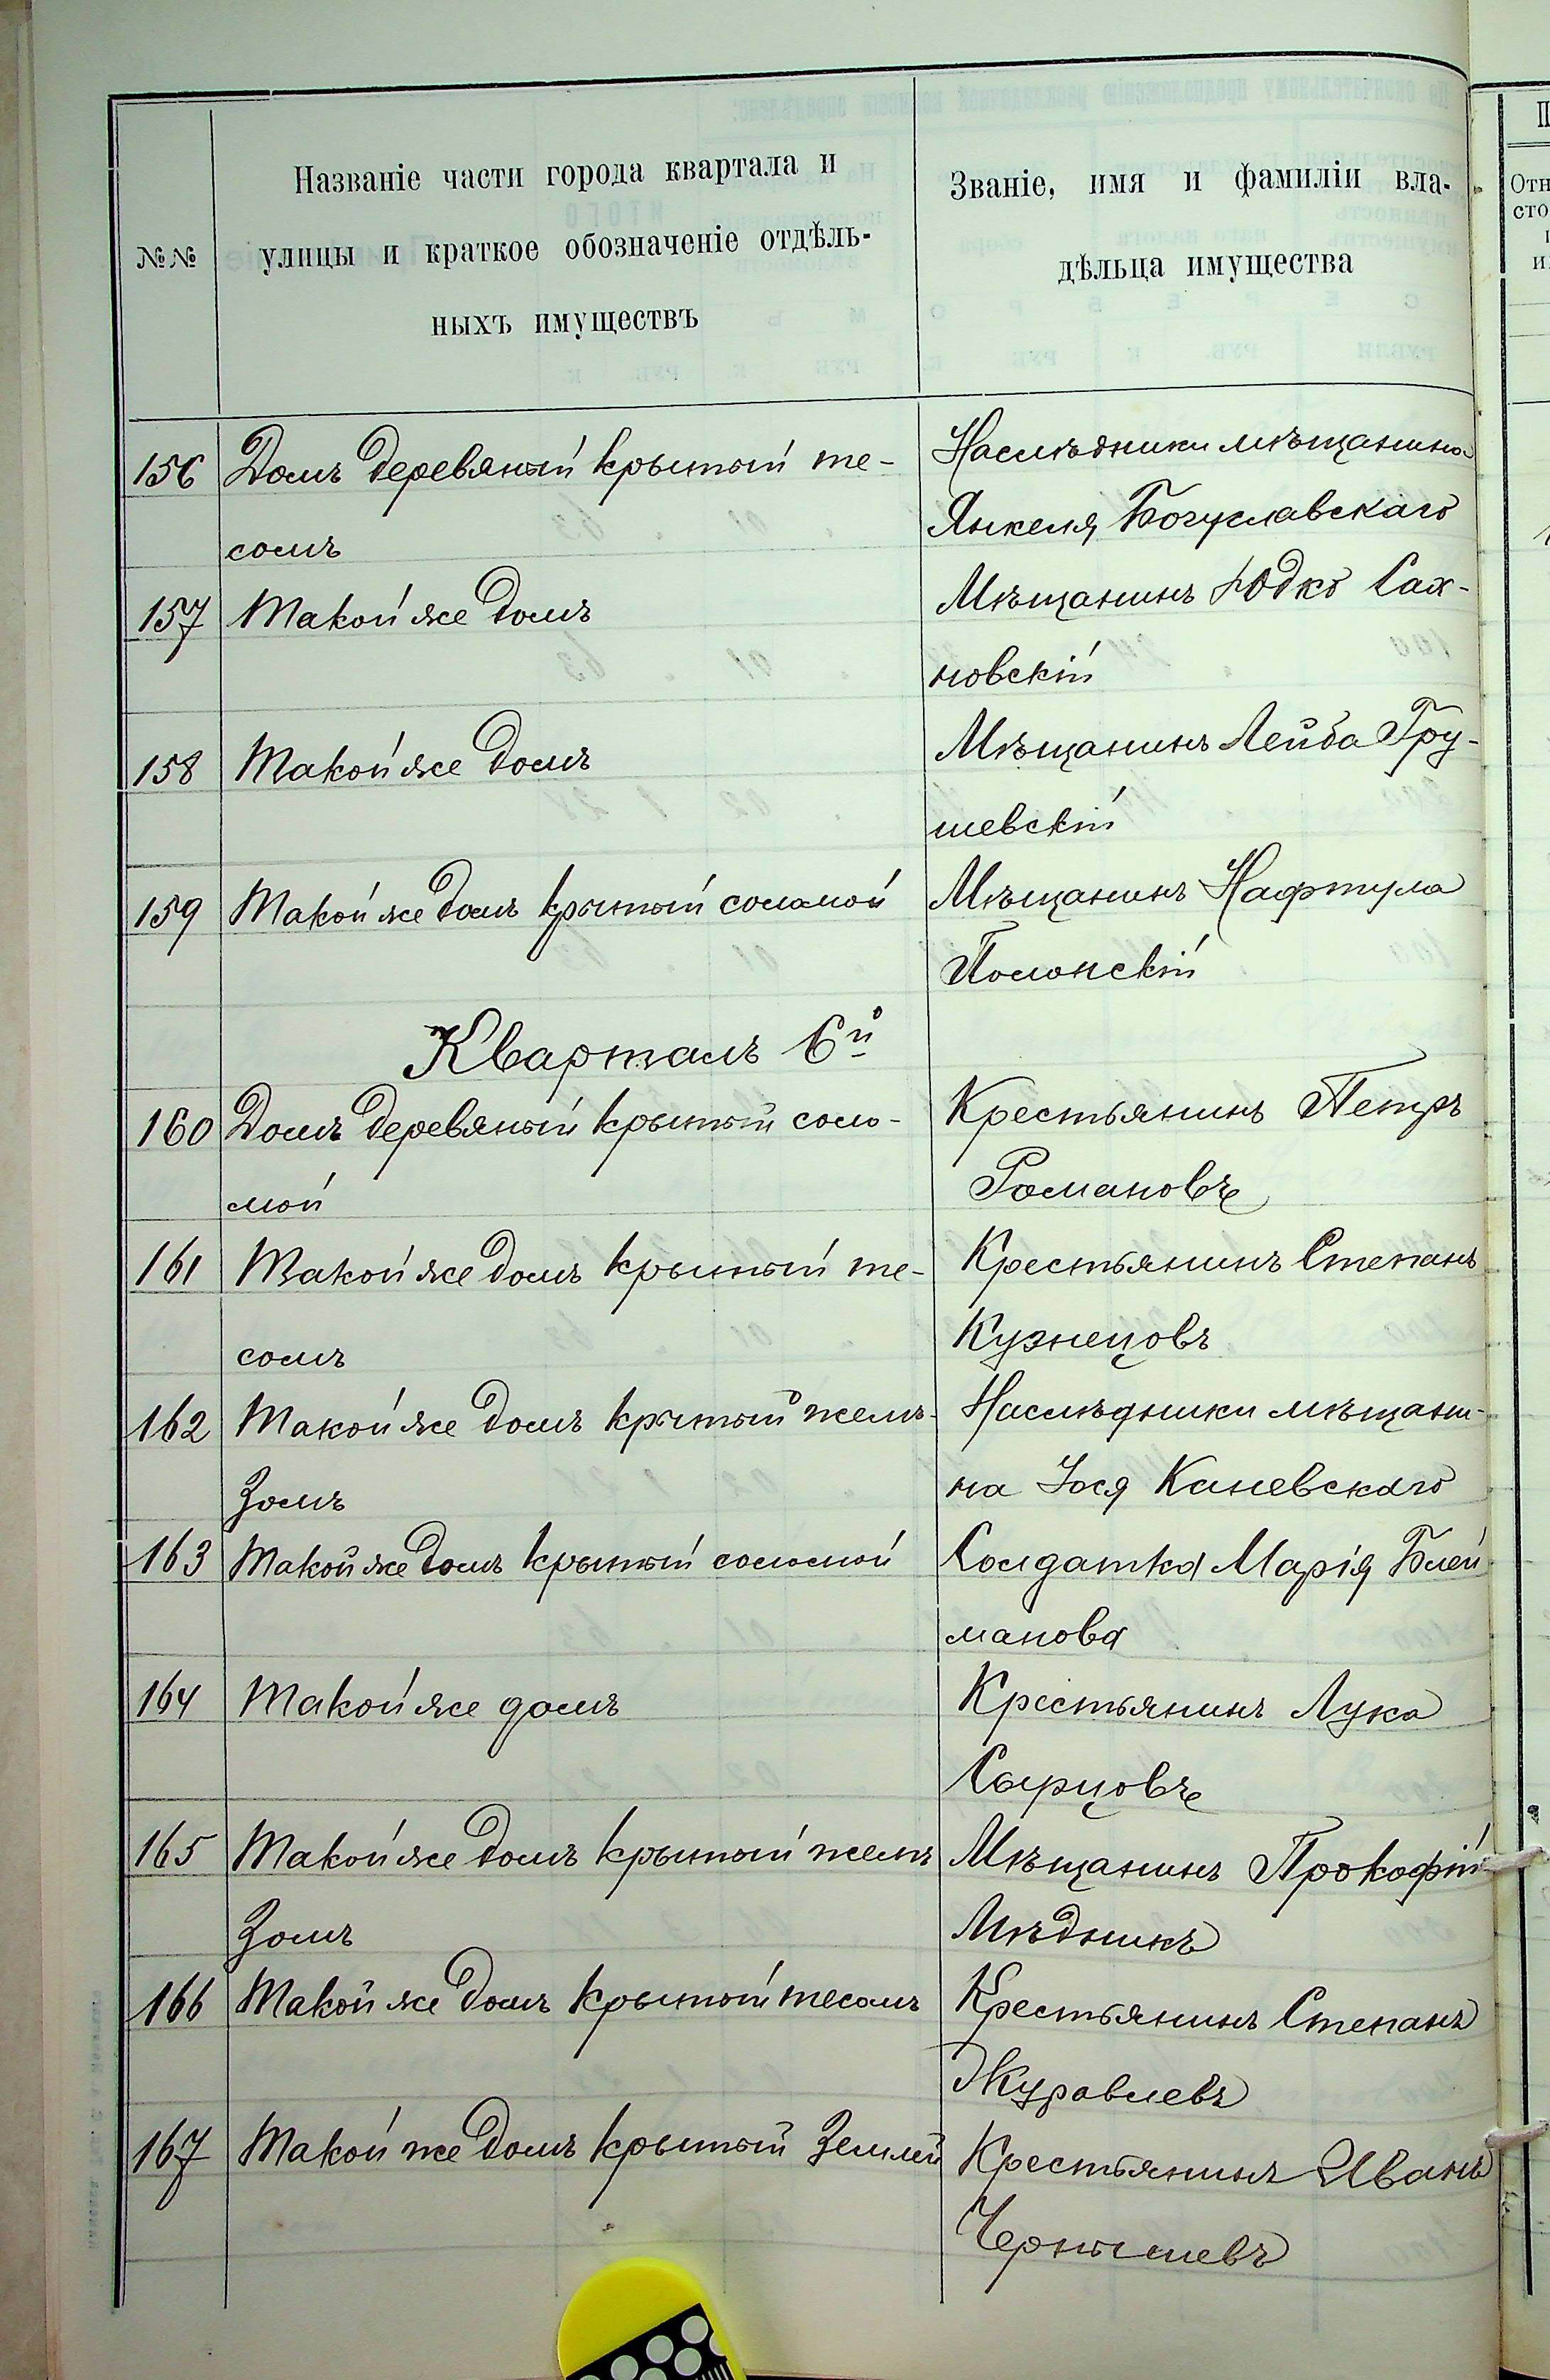 №№
Названіе части города квартала и
улицы и краткое обозначеніе отдѣль-
ныхъ имуществъ
Званіе, имя и фамиліи вла-
дѣльца имущества
156 Домъ деревяный крытый те-
сомъ
Наслѣдники мѣщанина
Янкеля Богуславскаго
157 Такой же домъ
Мѣщанинъ Юдко Сах-
новскій
158 Такой же домъ
Мѣщанинъ Лейба Гру-
шевскій
159 Такой же домъ крытый соломой
Мѣщанинъ Нафтула
Полонскій
Кварталъ 6й
160 Домъ деревяный крытый соло-
мой
Крестьянинъ Петръ
Романовъ
161 Такой же домъ крытый те-
сомъ
Крестьянинъ Степанъ
Кузнецовъ
162 Такой же домъ крытый желѣ-
зомъ
Наслѣдники мѣщани-
на Іося Каневскаго
163 Такой же домъ крытый соломой
Солдатка Марія Блей
манова
164 Такой же домъ
Крестьянинъ Лука
Сырцовъ
165 Такой же домъ крытый желѣ
зомъ
Мѣщанинъ Прокофій
Мѣдникъ
166 Такой же домъ крытый тесомъ
Крестьянинъ Степанъ
Журавлевъ
167 Такой же домъ крытый землей
Крестьянинъ Иванъ
Чернышевъ